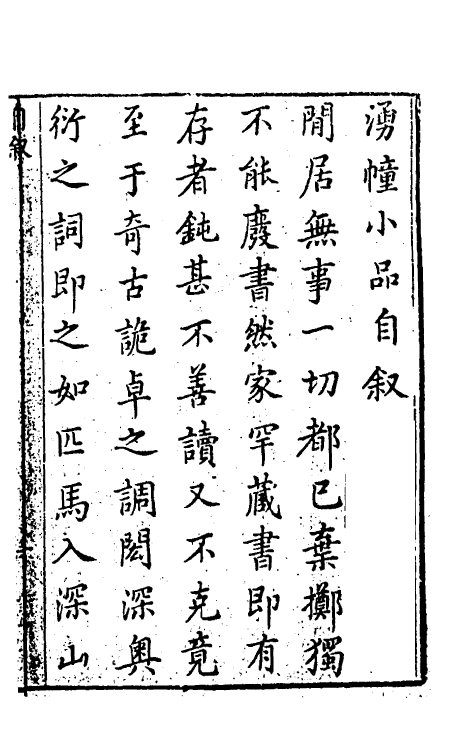 湧幢小品自叙
閒居無事一切都已棄擲獨
不能廢書然家罕藏書即有
存者鈍甚不善讀又不克竟
至于奇古詭卓之調閎深奧
衍之詞即之如匹馬入深山
自叙